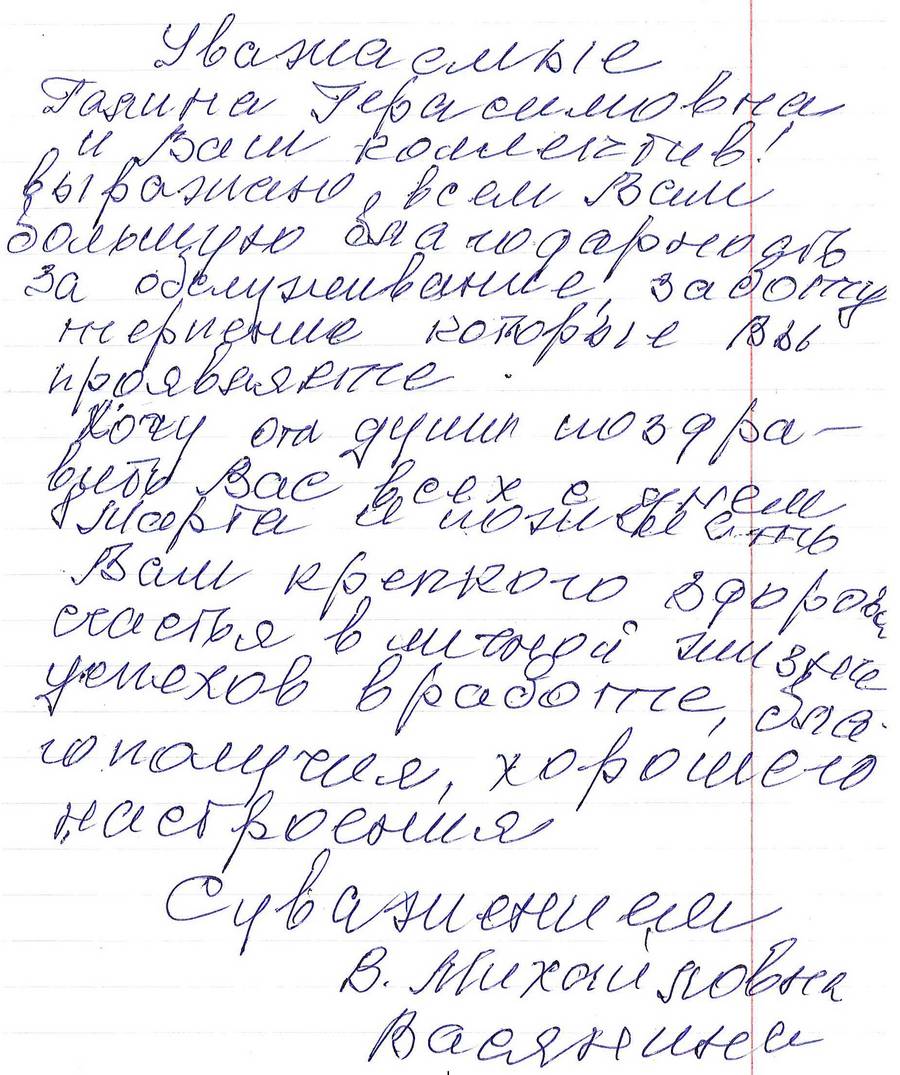 Уважаемые
Галина Герасимовна
и Ваш коллектив!
выражаю всем Вам
большую благодарность
за обслуживание, заботу
терпение которые Вы
проявляете.
Хочу от души поздра-
вить Вас всех с днем
Марта и пожелать
Вам крепкого здоровья
счастья в личной жизни
успехов в работе, бла-
гополучия, хорошего
настроения
С уважением
В. Михайловна
Васянина